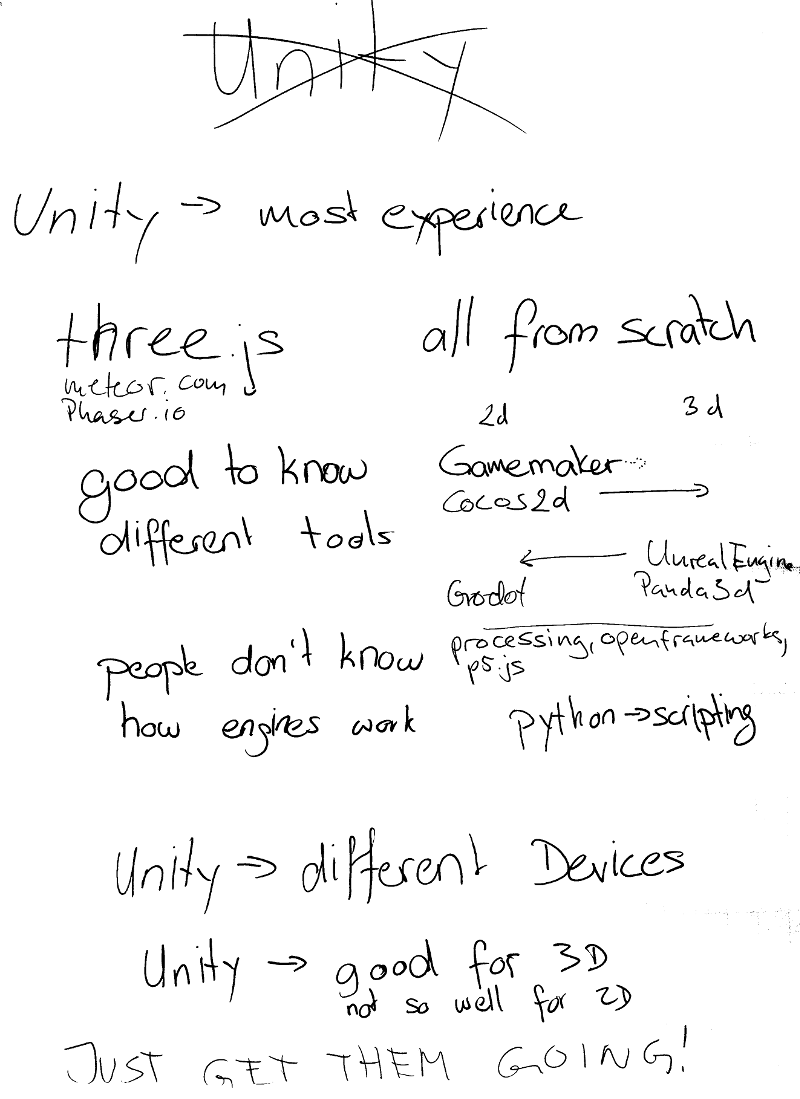 Unity
Unity → most experience
three.js
meteor.com
Phaser.io
all from scratch
2d 3d
good to know
different tools
Gamemaker
Cocos2d →
← UnrealEngine
Panda3d
Grodot
processing, openframeworks,
p5.js
people don't know
how engines work
python → scripting
Unity → different Devices
Unity → good for 3D
not so well for 2D
JUST GET THEM GOING!